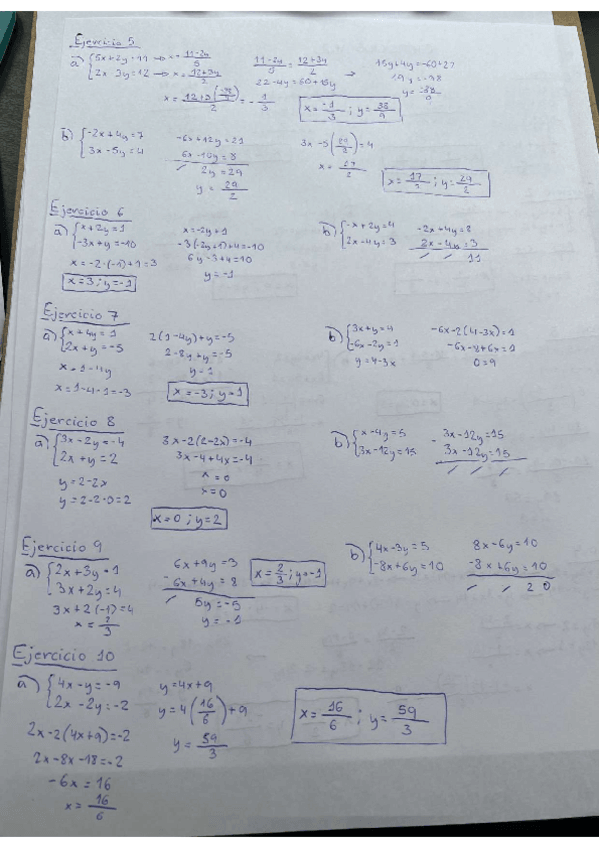 Ejercicio 5
a) 5x+2y=11 → x=(11-2y)/5
2x 3y=12 → x=(12+3y)/2
x=
= - 1/3
(11-2y)/5 = (12+3y)/2
22-4y=60+15y
→ 15y+4y=-60+22
19y=-38
x=-1/3 ; y=38/9
b) -2x+4y=7
3x-5y=4
-6x+12y=21
6x-10y=8
2y=29
y=29/2
3x-5(29/2)=4
x=
x=17/2 ; y=29/2
Ejercicio 6
a) x+2y=1
-3x+y=-10
x=-2·(-1)+1=3
x=3 ; y=-1
x=-2y+1
6y-3+4=10
y=-1
b) -x+2y=4
2x-4y=3
-2x+4y=8
2x-4y=3
11
Ejercicio 7
a) x+4y=1
2x+y=-5
x=1-4y
x=1-4·1=-3
2(1-4y)+y=-5
2-8y+y=-5
y=1
x=-3 ; y=1
b) 3x+y=4
-6x-2y=1
y=4-3x
-6x-2(4-3x)=1
-6x-8+6x=1
0=9
Ejercicio 8
a) 3x-2y=-4
2x+y=2
y=2-2x
y=2-2·0=2
3x-2(2-2x)=-4
3x-4+4x=-4
x=0
x=0
x=0 ; y=2
b) x-4y=5
3x-12y=15
- 3x-12y=15
3x-12y=15
Ejercicio 9
a) 2x+3y=1
3x+2y=4
3x+2(-1)=4
6x+9y=3
- 6x+4y=8
5y=-5
y=-1
x=2/3 ; y=-1
b) 4x-3y=5
-8x+6y=10
8x-6y=10
-8x+6y=10
20
Ejercicio 10
a) 4x-y=-9
2x-2y=-2
2x-2(4x+9)=-2
2x-8x-18=-2
-6x=16
x=16/6
y=4x+9
y=4(16/6)+9
y=59/3
x=16/6 ; y=59/3